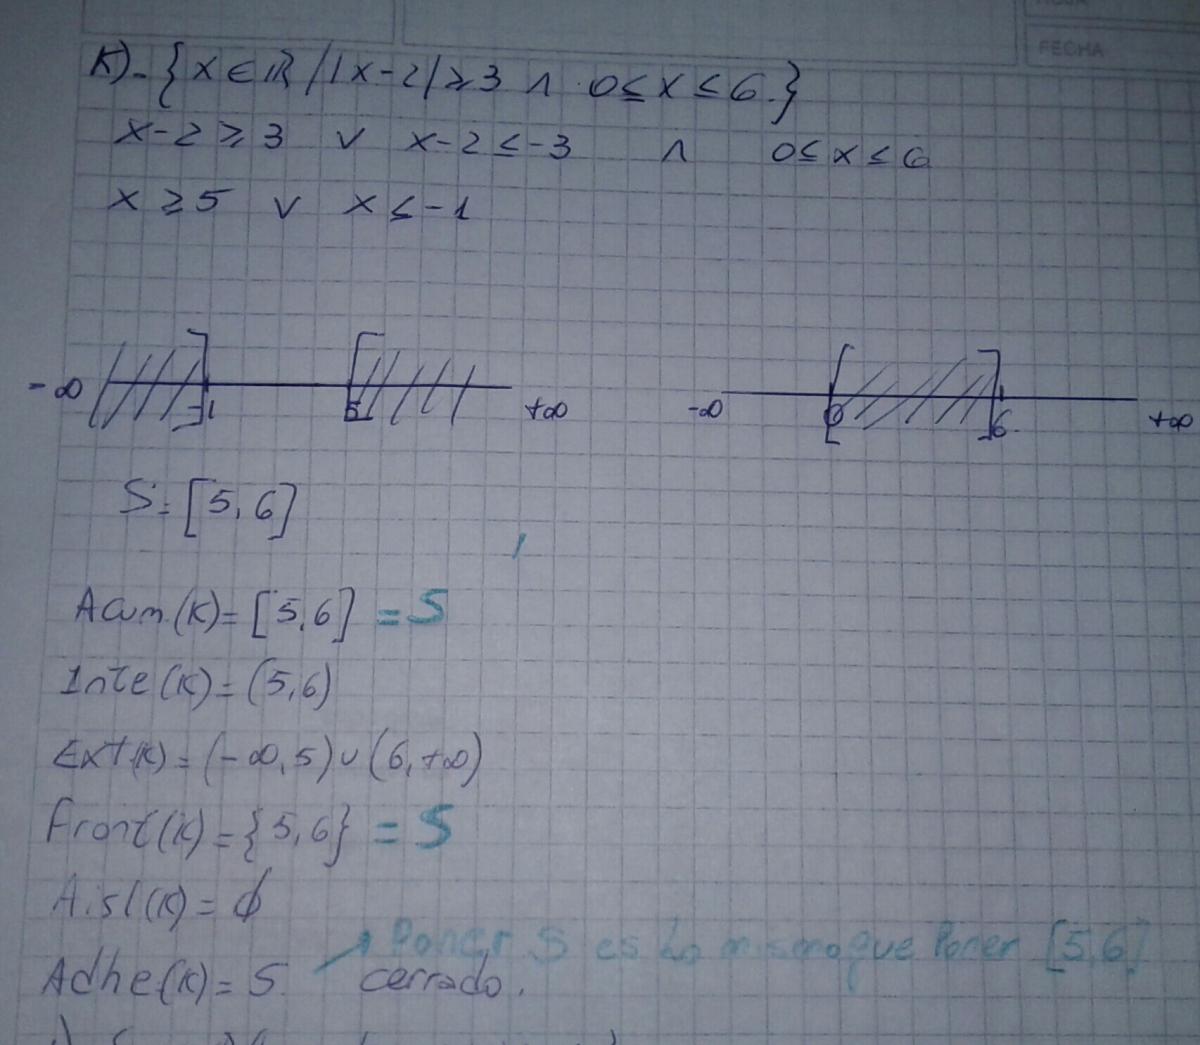 FECHA
K)- {x ∈ ℝ / |x-2| ≥ 3 ∧ 0 ≤ x ≤ 6.}
x-2 ≥ 3 ∨ x-2 ≤ -3 ∧ 0 ≤ x ≤ 6
x ≥ 5 ∨ x ≤ -1
-∞ -1 5 +∞ -∞ 0 6 +∞
S = [5,6]
Acum.(K) = [5,6] = S
Inte(K) = (5,6)
Ext(K) = (-∞,5) ∪ (6,+∞)
Front(K) = {5,6} = S
Aisl(K) = ϕ
Poner S es Lo mismo que Poner [5,6]
Adhe.(K) = S cerrado.